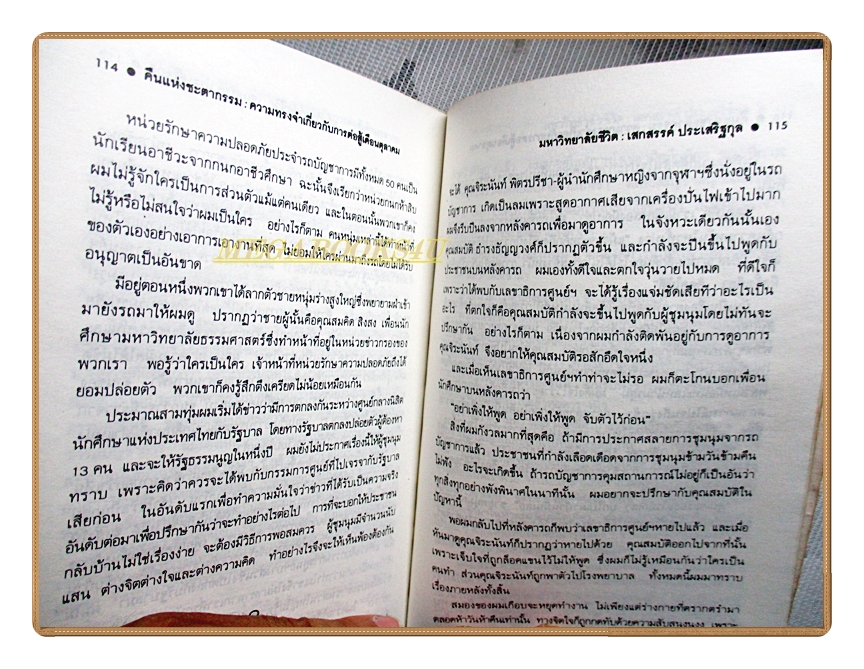 114 ● คืนแห่งชะตากรรม : ความทรงจำเกี่ยวกับการต่อสู้เดือนตุลาคม
หน่วยรักษาความปลอดภัยประจำรถบัญชาการมีทั้งหมด 50 คนเป็น
นักเรียนอาชีวะจากกนกอาชีวศึกษา ฉะนั้นจึงเรียกว่าหน่วยกนกห้าสิบ
ผมไม่รู้จักใครเป็นการส่วนตัวแม้แต่คนเดียว และในตอนนั้นพวกเขาก็คง
ไม่รู้หรือไม่สนใจว่าผมเป็นใคร อย่างไรก็ตาม คนหนุ่มเหล่านี้ได้ทำหน้าที่
ของตัวเองอย่างเอาการเอางานที่สุด ไม่ยอมให้ใครผ่านมาถึงรถโดยไม่ได้รับ
อนุญาตเป็นอันขาด
มีอยู่ตอนหนึ่งพวกเขาได้ลากตัวชายหนุ่มร่างสูงใหญ่ซึ่งพยายามฝ่าเข้า
มายังรถมาให้ผมดู ปรากฏว่าชายผู้นั้นคือคุณสมคิด สิงสง เพื่อนนัก
ศึกษามหาวิทยาลัยธรรมศาสตร์ซึ่งทำหน้าที่อยู่ในหน่วยข่าวกรองของ
พวกเรา พอรู้ว่าใครเป็นใคร เจ้าหน้าที่หน่วยรักษาความปลอดภัยถึงได้
ยอมปล่อยตัว พวกเขาก็คงรู้สึกตึงเครียดไม่น้อยเหมือนกัน
ประมาณสามทุ่มผมเริ่มได้ข่าวว่ามีการตกลงกันระหว่างศูนย์กลางนิสิต
นักศึกษาแห่งประเทศไทยกับรัฐบาล โดยทางรัฐบาลตกลงปล่อยตัวผู้ต้องหา
13 คน และจะให้รัฐธรรมนูญในหนึ่งปี ผมยังไม่ประกาศเรื่องนี้ให้ผู้ชุมนุม
ทราบ เพราะคิดว่าควรจะได้พบกับกรรมการศูนย์ที่ไปเจรจากับรัฐบาล
เสียก่อน ในอันดับแรกเพื่อทำความมั่นใจว่าข่าวที่ได้รับเป็นความจริง
อันดับต่อมาเพื่อปรึกษากันว่าจะทำอย่างไรต่อไป การที่จะบอกให้ประชาชน
กลับบ้านไม่ใช่เรื่องง่าย จะต้องมีวิธีการพอสมควร ผู้ชุมนุมมีจำนวนนับ
แสน ต่างจิตต่างใจและต่างความคิด ทำอย่างไรจึงจะให้เห็นพ้องต้องกัน
MEGABOOKS4U
มหาวิทยาลัยชีวิต : เสกสรรค์ ประเสริฐกุล ● 115
จะได้ คุณจิระนันท์ พิตรปรีชา-ผู้นำนักศึกษาหญิงจากจุฬาฯซึ่งนั่งอยู่ในรถ
บัญชาการ เกิดเป็นลมเพราะสูดอากาศเสียจากเครื่องปั่นไฟเข้าไปมาก
ผมจึงรีบปีนลงจากหลังคารถเพื่อมาดูอาการ ในจังหวะเดียวกันนั้นเอง
คุณสมบัติ ธำรงธัญญวงศ์ก็ปรากฏตัวขึ้น และกำลังจะปีนขึ้นไปพูดกับ
ประชาชนบนหลังคารถ ผมเองทั้งดีใจและตกใจวุ่นวายไปหมด ที่ดีใจก็
เพราะว่าได้พบกับเลขาธิการศูนย์ฯ จะได้รู้เรื่องแจ่มชัดเสียทีว่าอะไรเป็น
อะไร ที่ตกใจก็คือคุณสมบัติกำลังจะขึ้นไปพูดกับผู้ชุมนุมโดยไม่ทันจะ
ปรึกษากัน อย่างไรก็ตาม เนื่องจากผมกำลังติดพันอยู่กับการดูอาการ
คุณจิระนันท์ จึงอยากให้คุณสมบัติรอสักอึดใจหนึ่ง
และเมื่อเห็นเลขาธิการศูนย์ฯทำท่าจะไม่รอ ผมก็ตะโกนบอกเพื่อน
นักศึกษาบนหลังคารถว่า
"อย่าเพิ่งให้พูด อย่าเพิ่งให้พูด จับตัวไว้ก่อน"
สิ่งที่ผมกังวลมากที่สุดคือ ถ้ามีการประกาศสลายการชุมนุมจากรถ
บัญชาการแล้ว ประชาชนที่กำลังเลือดเดือดจากการชุมนุมข้ามวันข้ามคืน
ไม่ฟัง อะไรจะเกิดขึ้น ถ้ารถบัญชาการคุมสถานการณ์ไม่อยู่ก็เป็นอันว่า
ทุกสิ่งทุกอย่างพังพินาศในนาทีนั้น ผมอยากจะปรึกษากับคุณสมบัติใน
ปัญหานี้
พอผมกลับไปที่หลังคารถก็พบว่าเลขาธิการศูนย์ฯหายไปแล้ว และเมื่อ
หันมาดูคุณจิระนันท์ก็ปรากฏว่าหายไปด้วย คุณสมบัติออกไปจากที่นั้น
เพราะเจ็บใจที่ถูกล็อคแขนไว้ไม่ให้พูด ซึ่งผมก็ไม่รู้เหมือนกันว่าใครเป็น
คนทำ ส่วนคุณจิระนันท์ถูกพาตัวไปโรงพยาบาล ทั้งหมดนี้ผมมาทราบ
เรื่องภายหลังทั้งสิ้น
สมองของผมเกือบจะหยุดทำงาน ไม่เพียงแต่ร่างกายที่ตรากตรำมา
ตลอดห้าวันห้าคืนเท่านั้น ทางจิตใจก็ถูกกดทับด้วยความสับสนงุนงง เพราะ